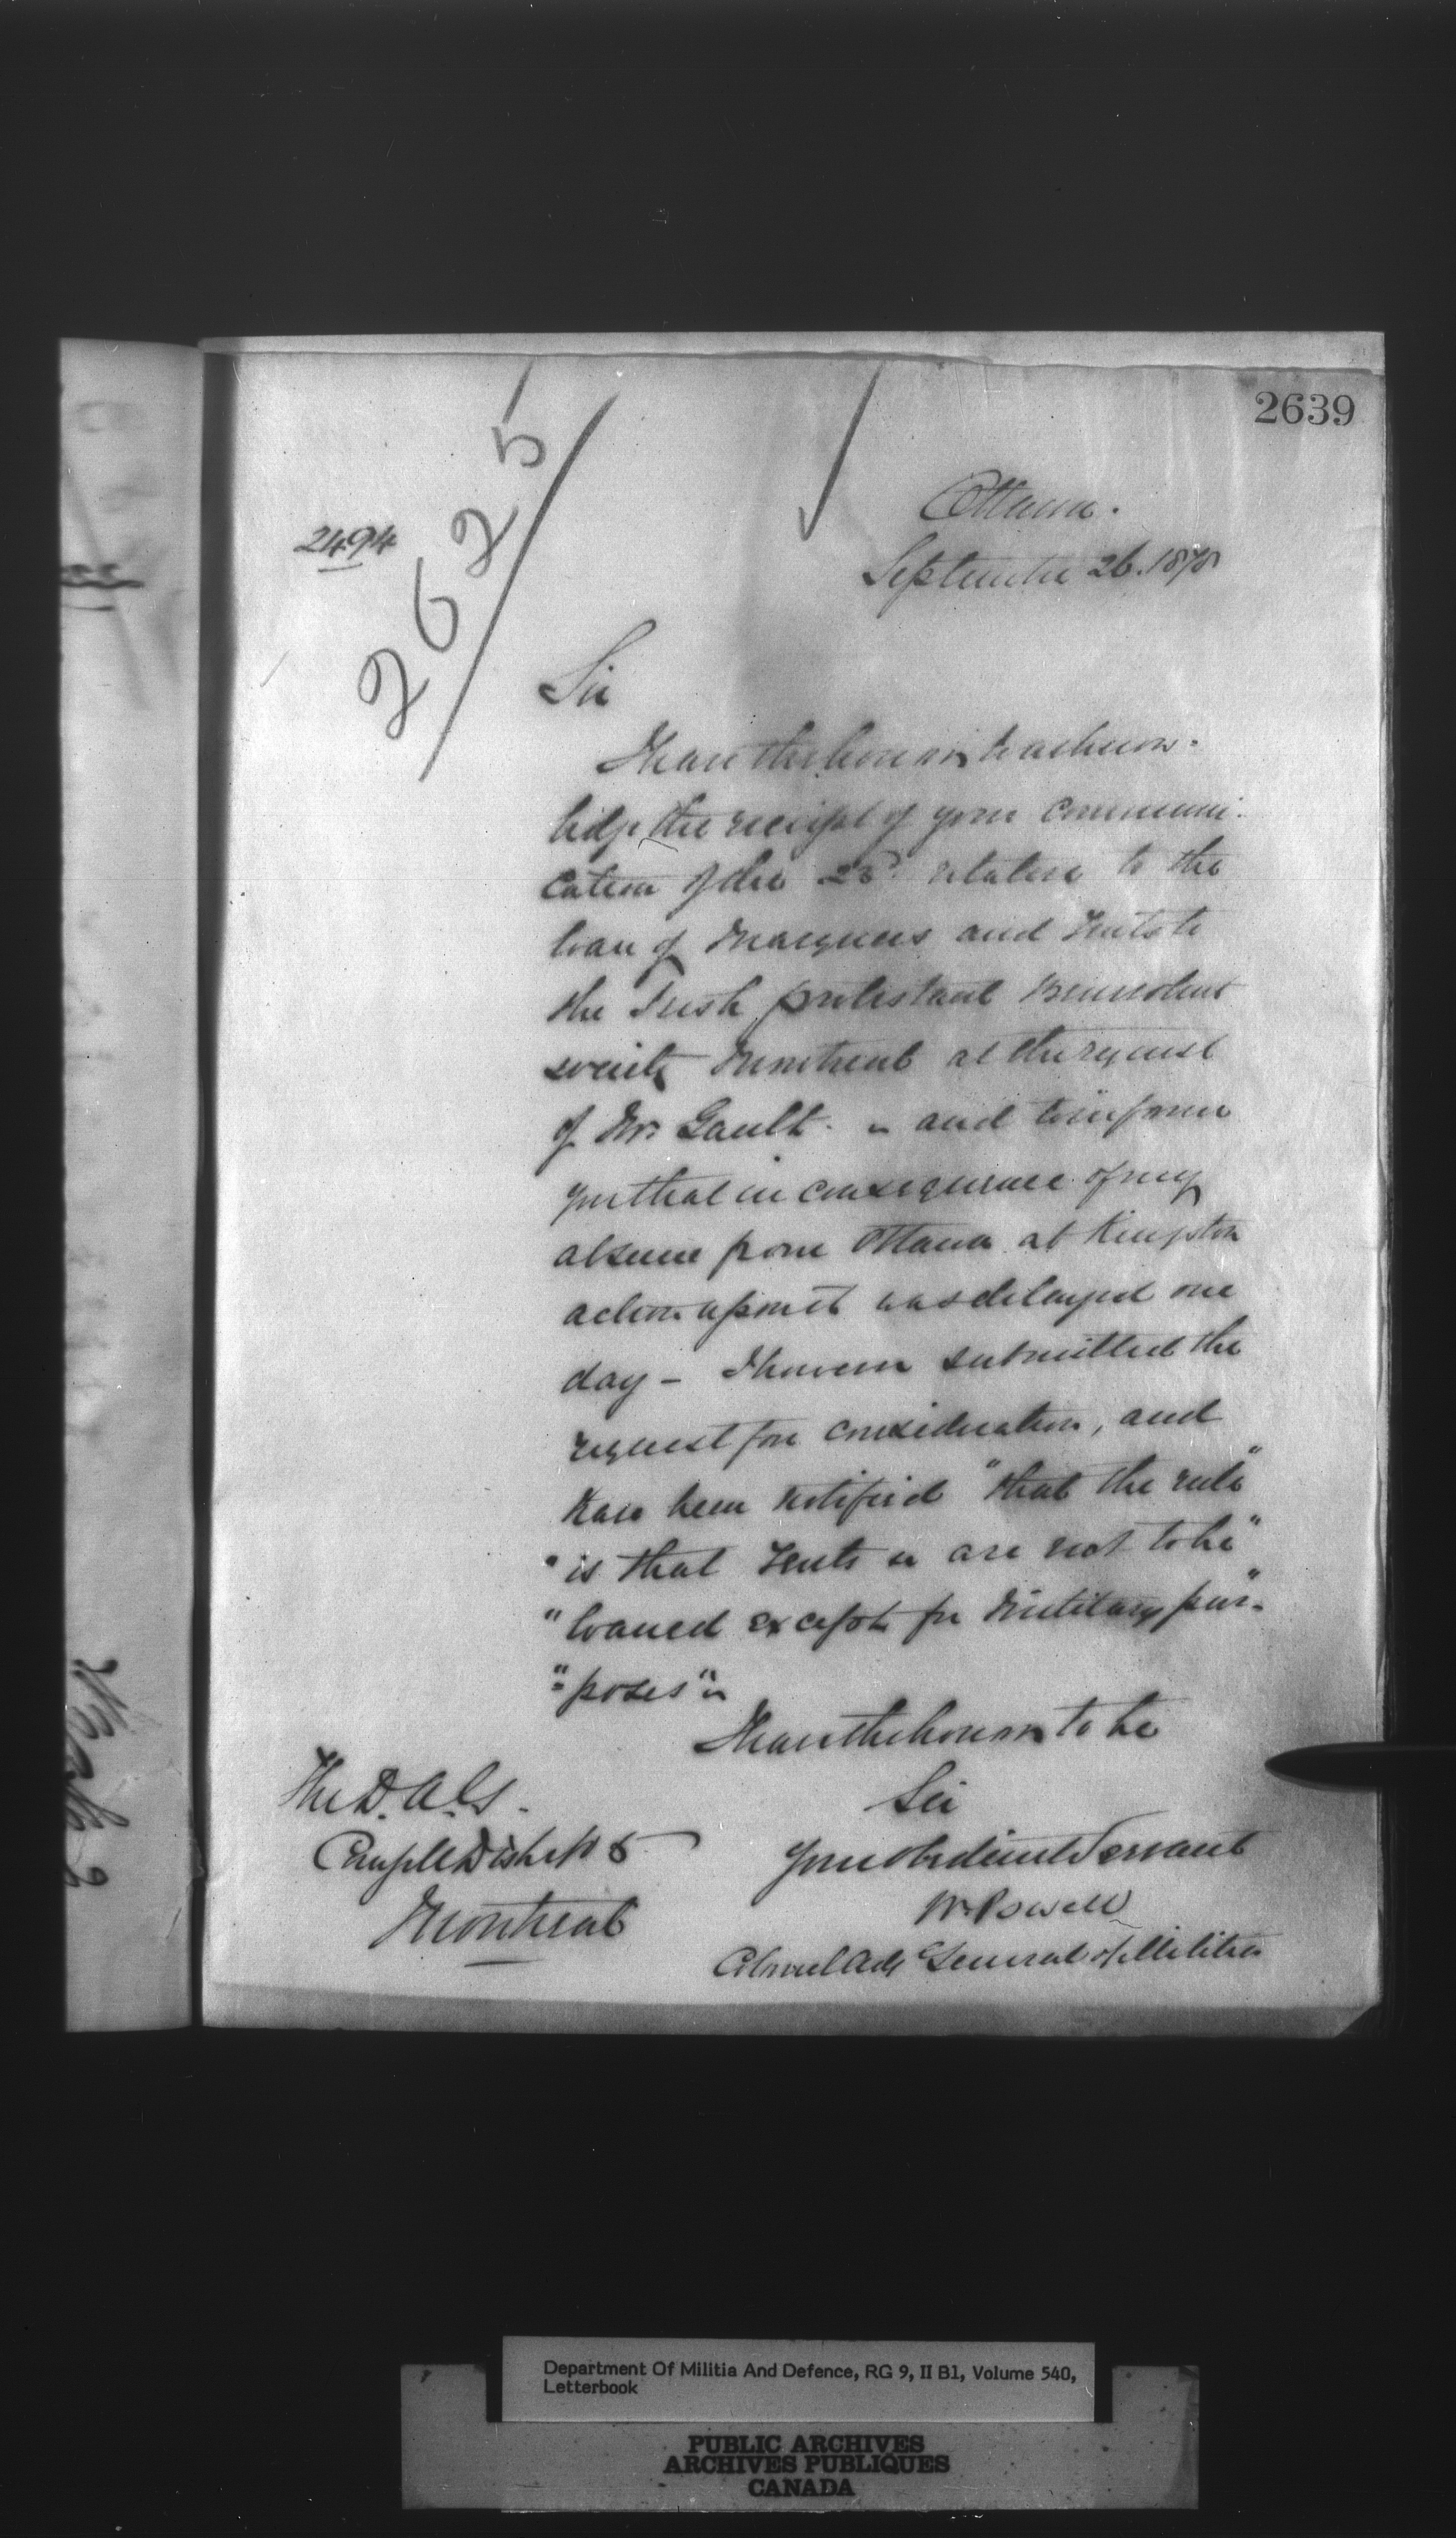 2639
2625
2494
Ottawa.
September 26. 1878
Sir
I have the honor to acknow-
ledge the receipt of your communi-
cation of the 23d. relative to the
loan of Marquees and Tents to
the Irish protestant Benevolent
society Montreal at the request
of Mr. Gault. - and to inform
you that in consequence of my
absence from Ottawa at Kingston
action upon it was delayed one
day - I however submitted the
request for consideration, and
have been notified "that the rule"
"is that Tents are not to be"
"loaned except for Military pur-"
"poses"
I have the honor to be
Sir
Your obedient Servant
W Powell
Colonel Adj General of Militia
The D.A.G.
Comg Ml District 5
Montreal
Department Of Militia And Defence, RG 9, II B1, Volume 540,
Letterbook
PUBLIC ARCHIVES
ARCHIVES PUBLIQUES
CANADA